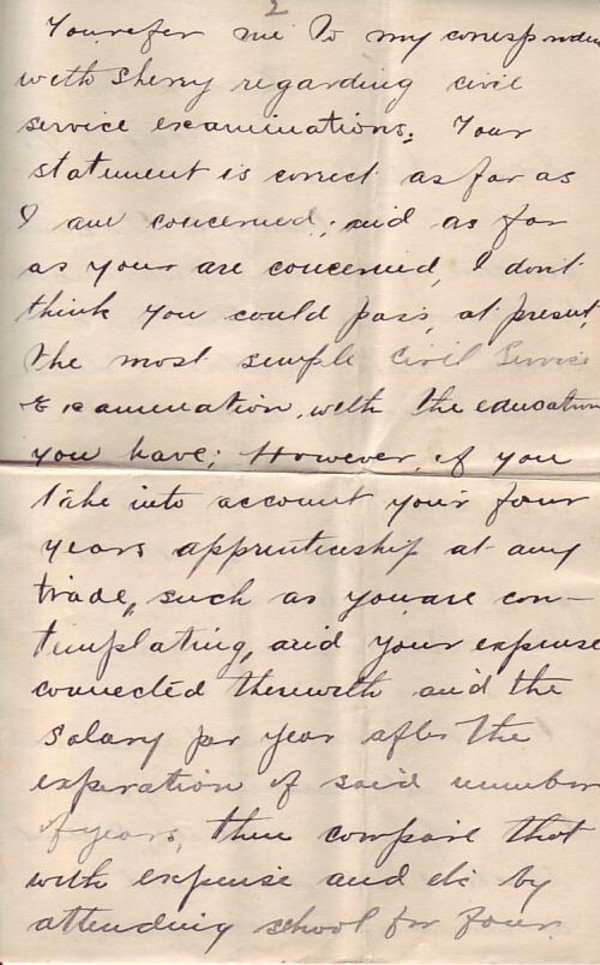 2
You refer me to my corresponden
with Sherry regarding civil
service examinations. Your
statement is correct as far as
I am concerned; and as far
as your are concerned, I don't
think you could pass, at present,
the most simple Civil Service
Examination, with the education
you have; However, if you
take into account your four
years apprenticeship at any
trade, such as you are con-
templating, and your expense
connected therewith and the
salary per year after the
experation of said number
of years, then compare that
with expense and etc by
attending school for four